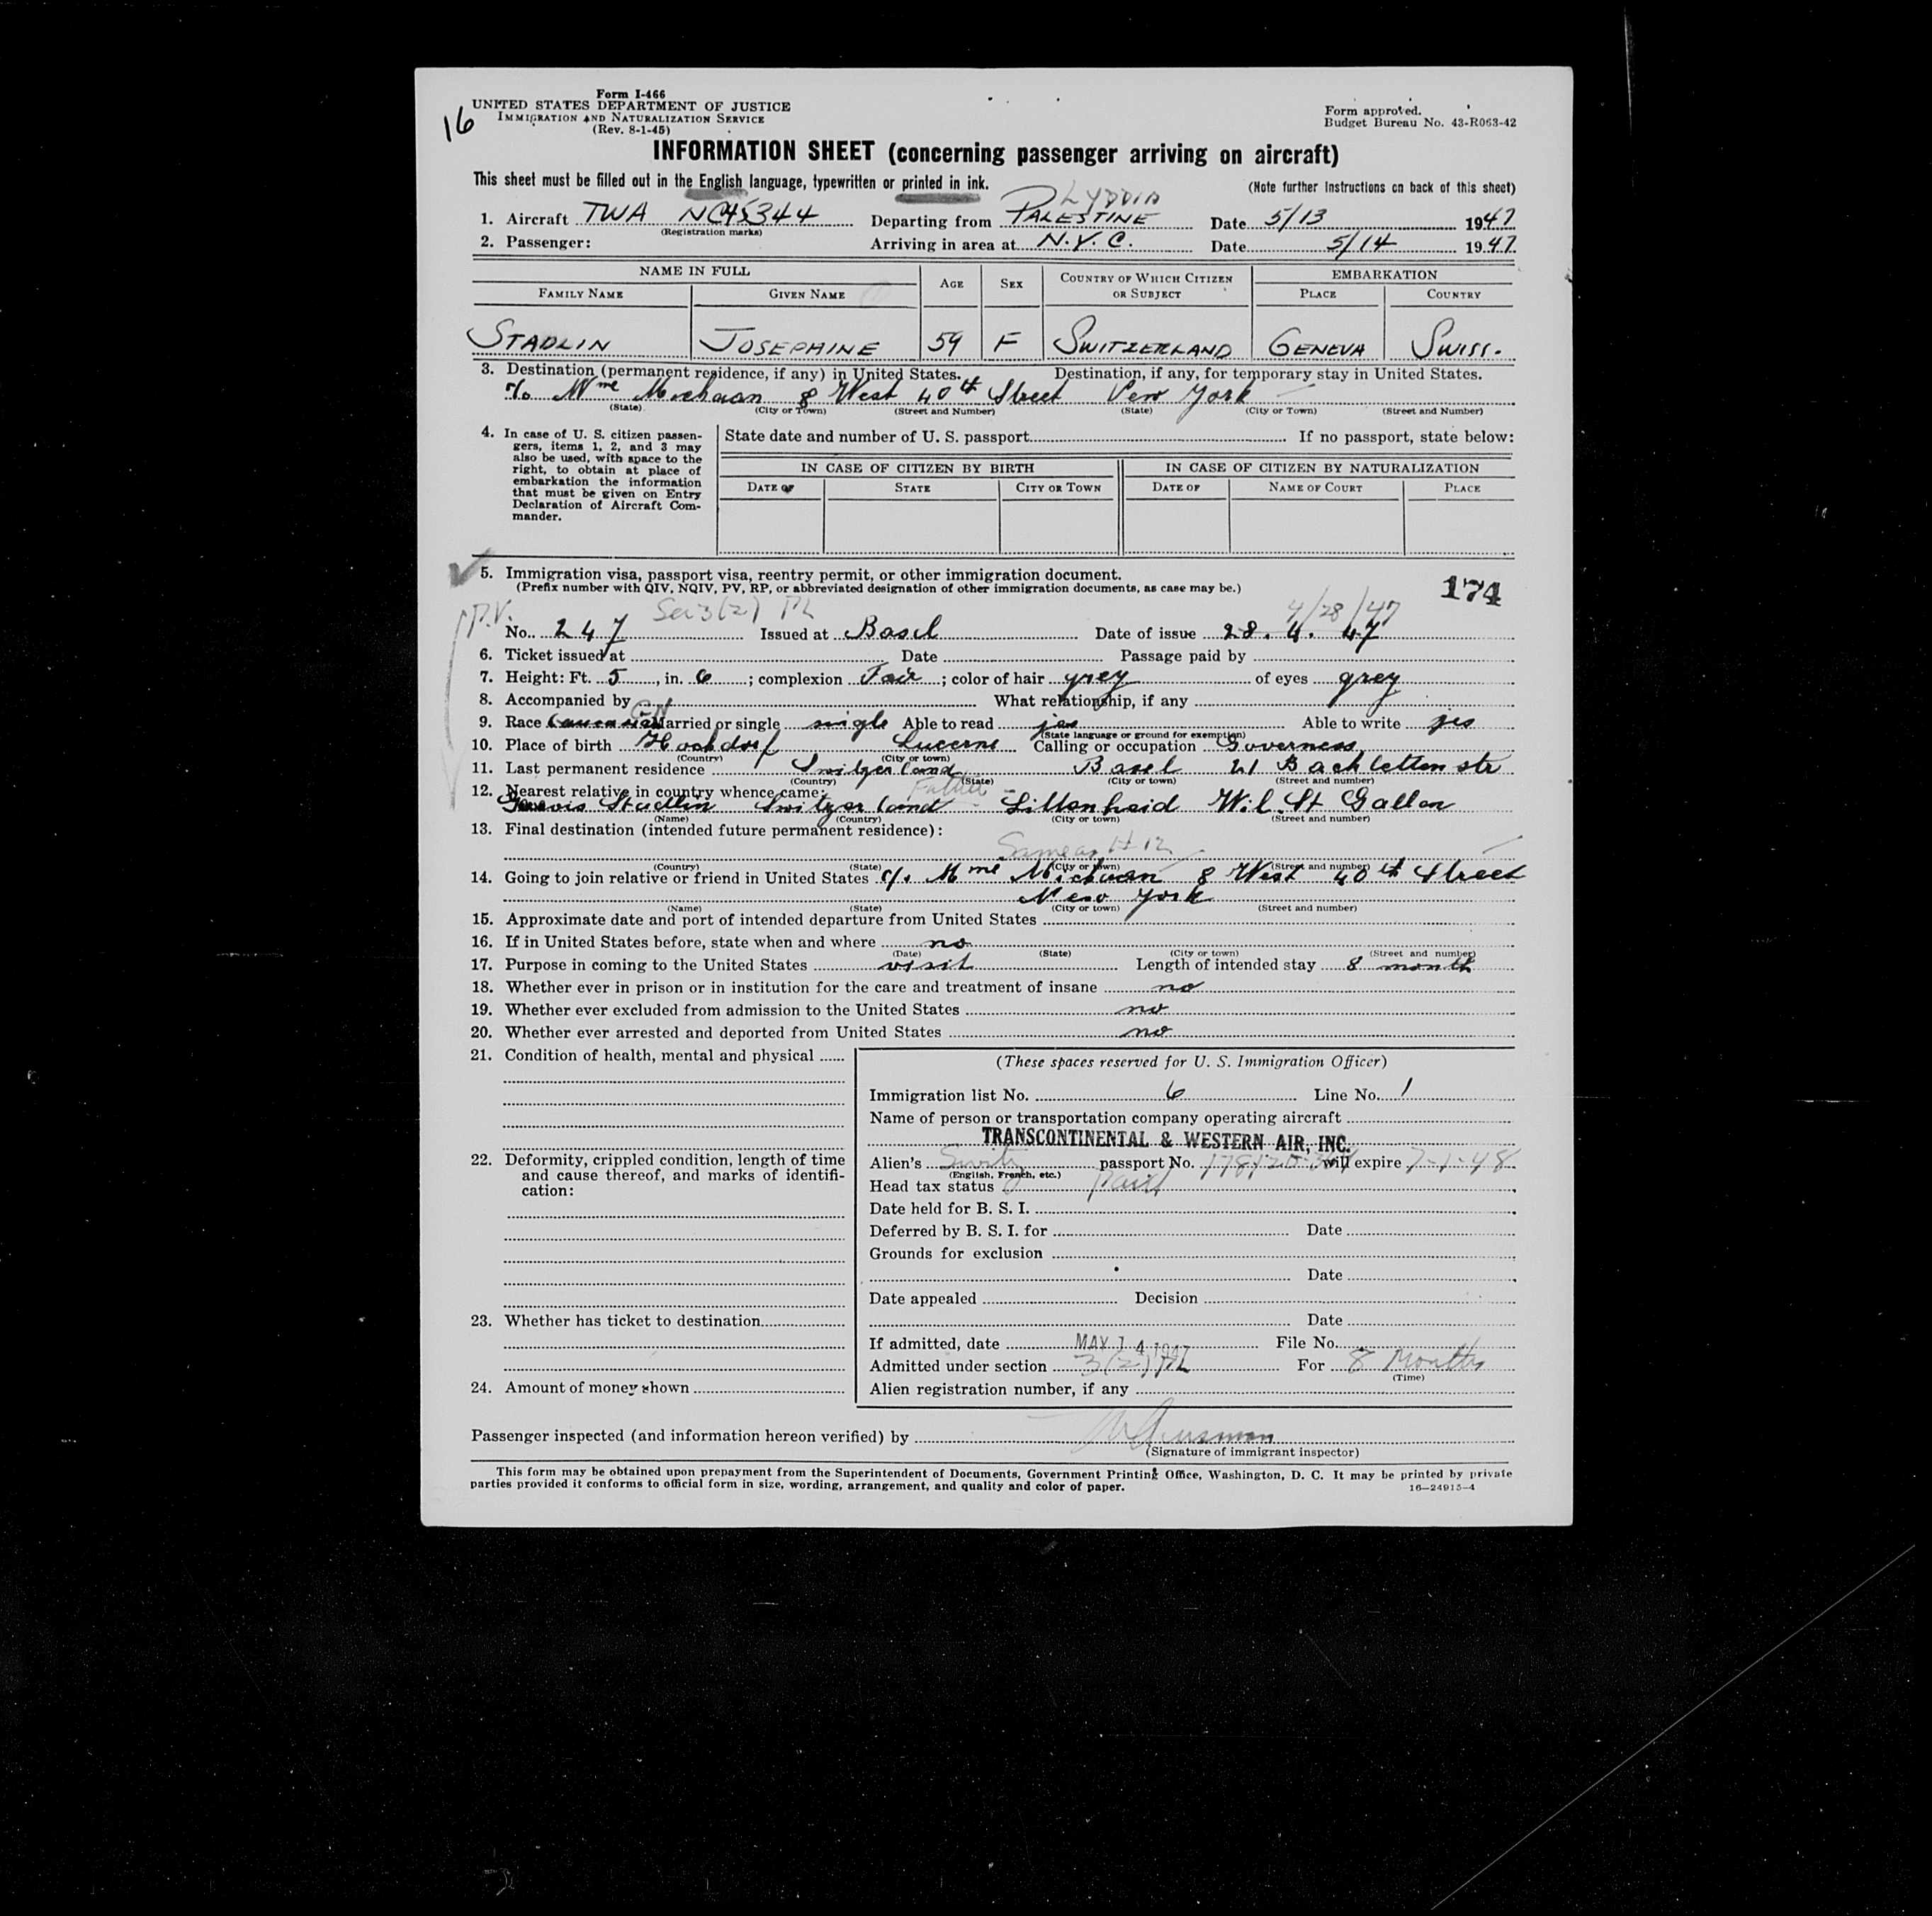 16
Form I-466
UNITED STATES DEPARTMENT OF JUSTICE
IMMIGRATION AND NATURALIZATION SERVICE
(Rev. 8-1-45)
Form approved.
Budget Bureau No. 43-R063-42
INFORMATION SHEET (concerning passenger arriving on aircraft)
This sheet must be filled out in the English language, typewritten or printed in ink.
(Note further instructions on back of this sheet)
LYDDIA
1. Aircraft TWA NC45344 Departing from PALESTINE Date 5/13 1947
(Registration marks)
2. Passenger: Arriving in area at N.Y.C. Date 5/14 1947
NAME IN FULL AGE SEX COUNTRY OF WHICH CITIZEN OR SUBJECT EMBARKATION
FAMILY NAME GIVEN NAME PLACE COUNTRY
STADLIN JOSEPHINE 59 F SWITZERLAND GENEVA SWISS.
3. Destination (permanent residence, if any) in United States. Destination, if any, for temporary stay in United States.
c/o Mme 8 West 40th Street New York
(State) (City or Town) (Street and Number) (State) (City or Town) (Street and Number)
4. In case of U. S. citizen passen-
gers, items 1, 2, and 3 may
also be used, with space to the
right, to obtain at place of
embarkation the information
that must be given on Entry
Declaration of Aircraft Com-
mander.
State date and number of U. S. passport If no passport, state below:
IN CASE OF CITIZEN BY BIRTH IN CASE OF CITIZEN BY NATURALIZATION
DATE OF STATE CITY OR TOWN DATE OF NAME OF COURT PLACE
5. Immigration visa, passport visa, reentry permit, or other immigration document.
(Prefix number with QIV, NQIV, PV, RP, or abbreviated designation of other immigration documents, as case may be.)
174
P.V. Sec 3(2) 4/28/47
No. 247 Issued at Basel Date of issue 28. 4. 47
6. Ticket issued at Date Passage paid by
7. Height: Ft. 5, in. 6; complexion Fair; color of hair grey of eyes grey
8. Accompanied by What relationship, if any
9. Race Caucasian Married or single single Able to read yes Able to write yes
(State language or ground for exemption)
10. Place of birth Hochdorf Lucerne Calling or occupation Governess
(Country) (City or town)
11. Last permanent residence Switzerland Basel 21 Bachlettenstr
(Country) (State) (City or town) (Street and number)
12. Nearest relative in country whence came: Father
Stadlin Switzerland Littenheid Wil St Gallen
(Name) (Country) (City or town) (Street and number)
13. Final destination (intended future permanent residence):
Same as # 12
(Country) (State) (City or town) (Street and number)
14. Going to join relative or friend in United States c/o Mme 8 West 40th Street
New York
(Name) (State) (City or town) (Street and number)
15. Approximate date and port of intended departure from United States
16. If in United States before, state when and where no
(Date) (State) (City or town) (Street and number)
17. Purpose in coming to the United States visit Length of intended stay 8 month
18. Whether ever in prison or in institution for the care and treatment of insane no
19. Whether ever excluded from admission to the United States no
20. Whether ever arrested and deported from United States no
21. Condition of health, mental and physical
22. Deformity, crippled condition, length of time
and cause thereof, and marks of identifi-
cation:
23. Whether has ticket to destination
24. Amount of money shown
(These spaces reserved for U. S. Immigration Officer)
Immigration list No. 6 Line No. 1
Name of person or transportation company operating aircraft
TRANSCONTINENTAL & WESTERN AIR, INC.
Alien's Switz passport No. will expire 7-1-48
(English, French, etc.)
Head tax status Paid
Date held for B. S. I.
Deferred by B. S. I. for Date
Grounds for exclusion
Date
Date appealed Decision
Date
If admitted, date MAY 14 1947 File No.
Admitted under section 3(2) For 8 Months
(Time)
Alien registration number, if any
Passenger inspected (and information hereon verified) by
(Signature of immigrant inspector)
This form may be obtained upon prepayment from the Superintendent of Documents, Government Printing Office, Washington, D. C. It may be printed by private
parties provided it conforms to official form in size, wording, arrangement, and quality and color of paper.
16—24915-4